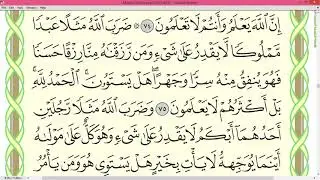 إِنَّ ٱللَّهَ يَعْلَمُ وَأَنتُمْ لَا تَعْلَمُونَ ٧٤ ضَرَبَ ٱللَّهُ مَثَلًا عَبْدًا
مَّمْلُوكًا لَّا يَقْدِرُ عَلَىٰ شَىْءٍ وَمَن رَّزَقْنَٰهُ مِنَّا رِزْقًا حَسَنًا
فَهُوَ يُنفِقُ مِنْهُ سِرًّا وَجَهْرًا ۖ هَلْ يَسْتَوُۥنَ ۚ ٱلْحَمْدُ لِلَّهِ ۚ
بَلْ أَكْثَرُهُمْ لَا يَعْلَمُونَ ٧٥ وَضَرَبَ ٱللَّهُ مَثَلًا رَّجُلَيْنِ
أَحَدُهُمَآ أَبْكَمُ لَا يَقْدِرُ عَلَىٰ شَىْءٍ وَهُوَ كَلٌّ عَلَىٰ مَوْلَىٰهُ
أَيْنَمَا يُوَجِّههُّ لَا يَأْتِ بِخَيْرٍ ۖ هَلْ يَسْتَوِى هُوَ وَمَن يَأْمُرُ